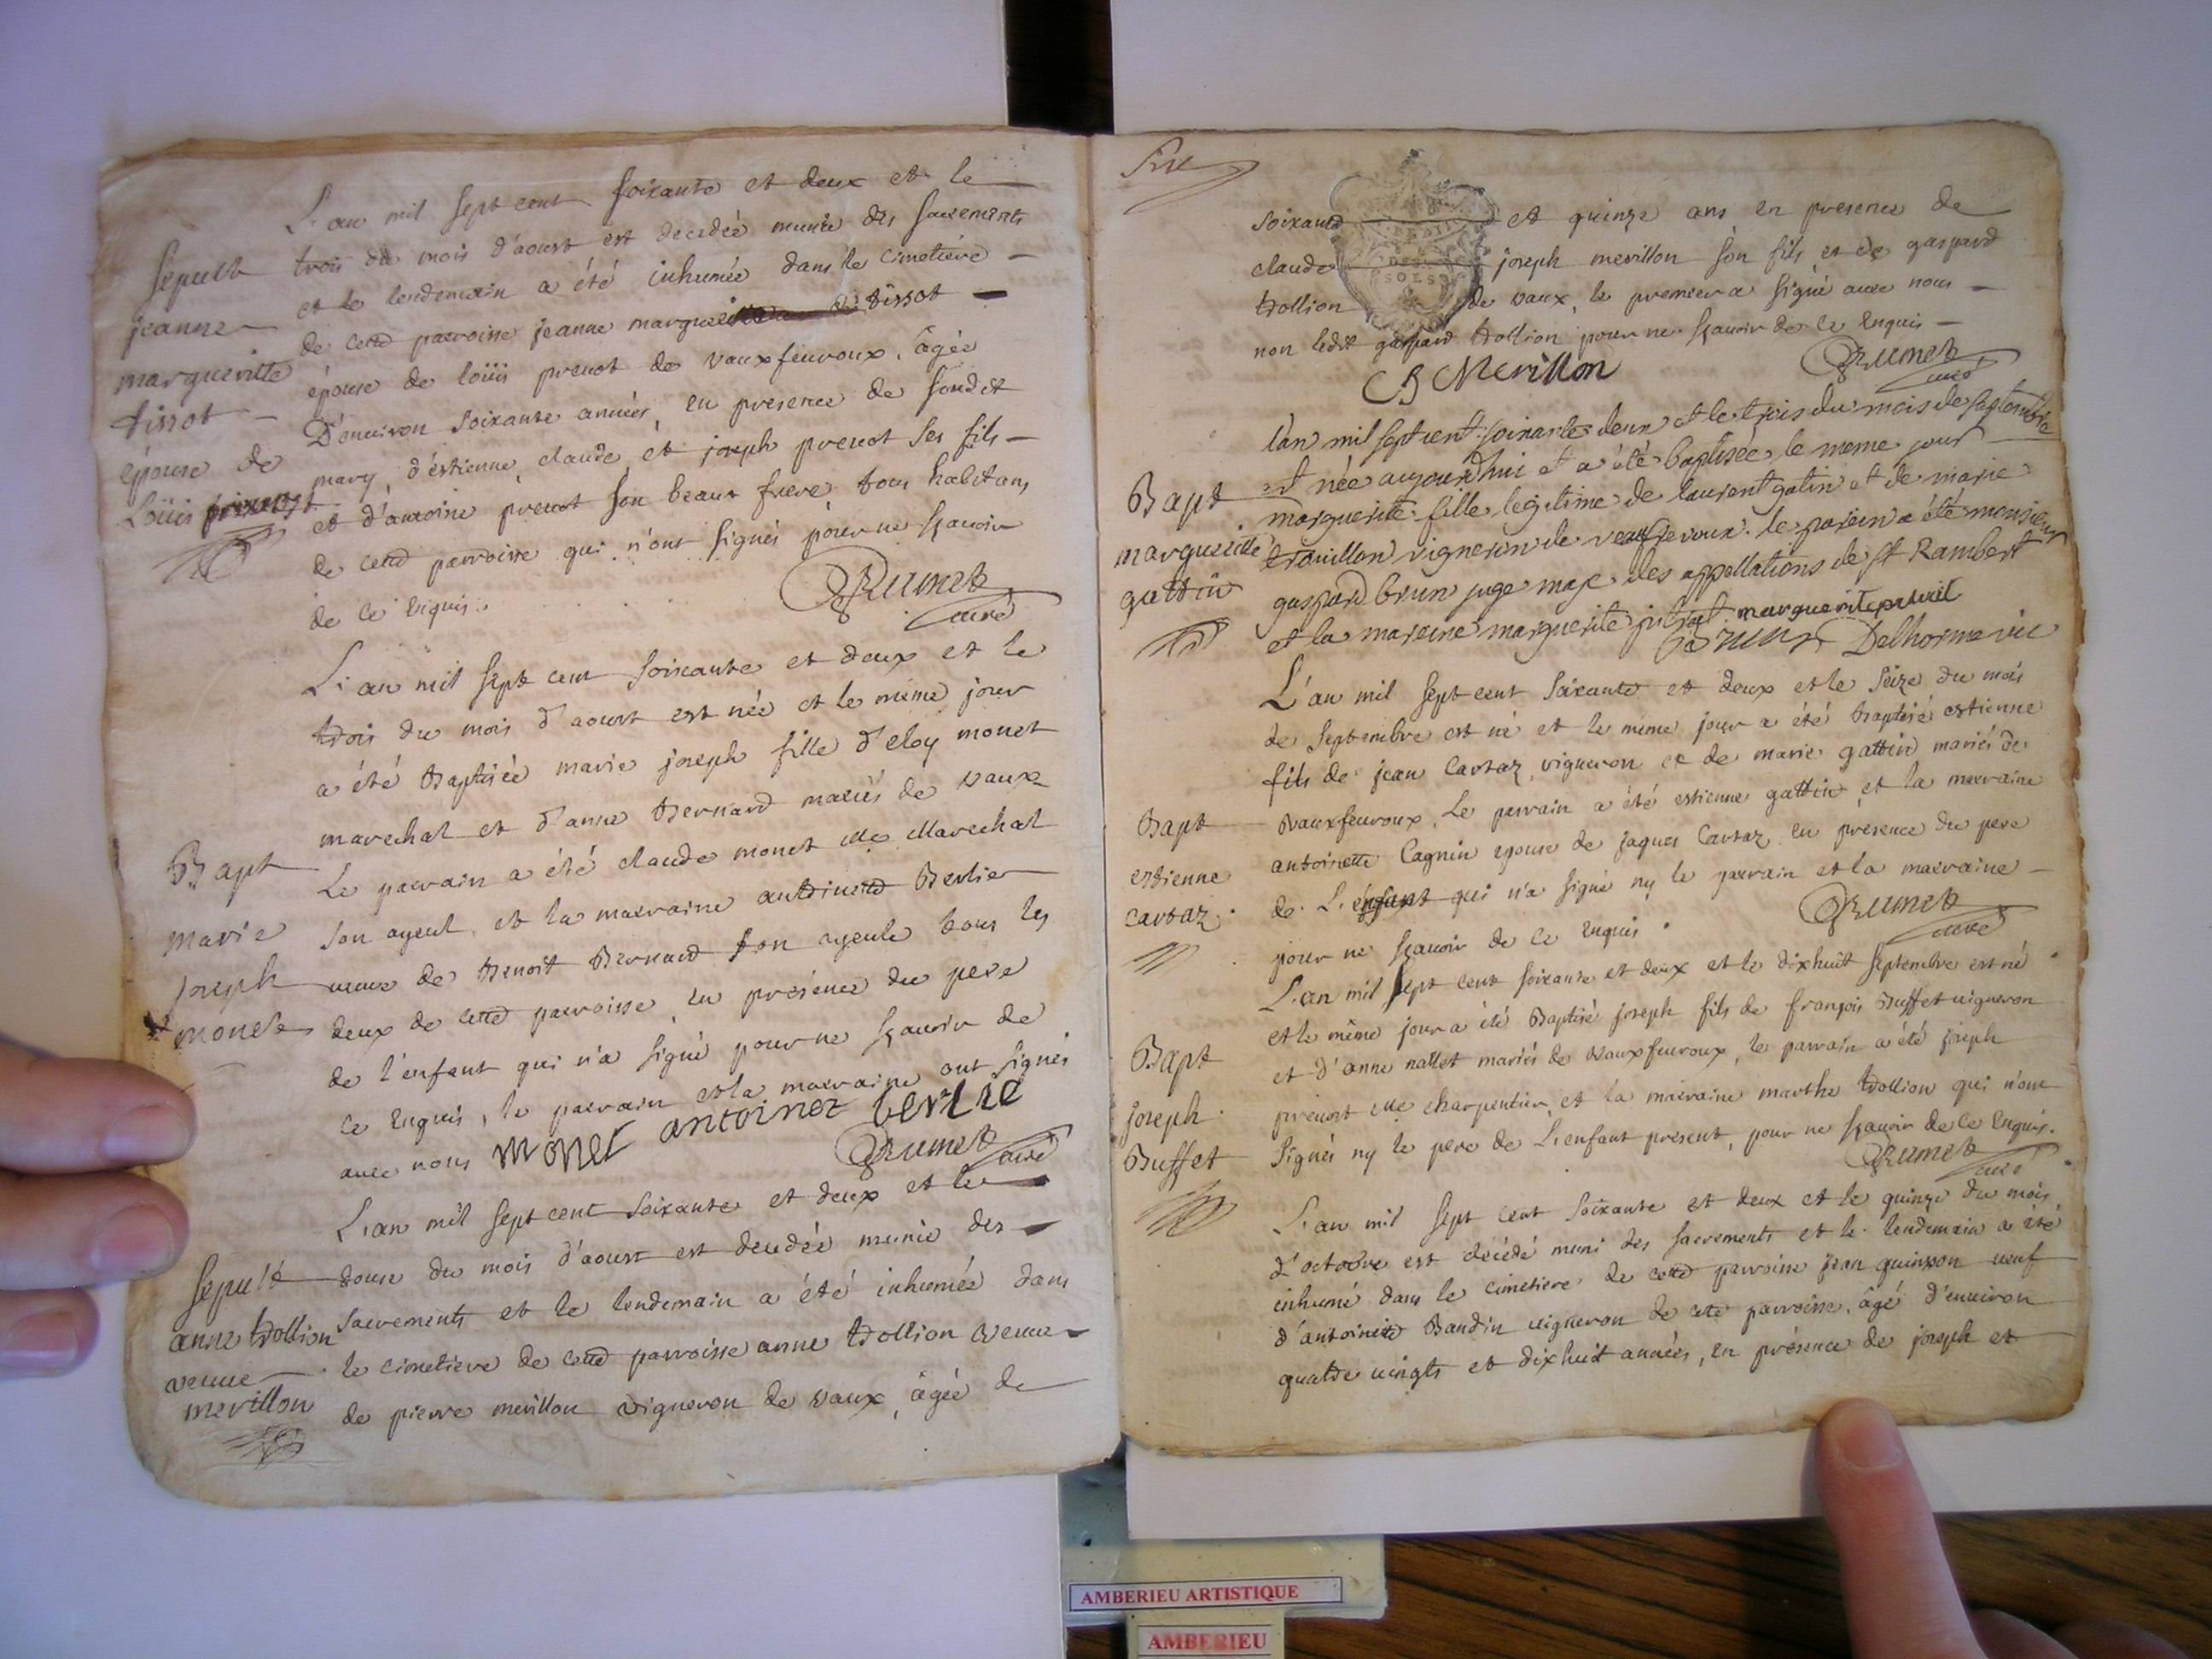 L'an mil sept cent soixante et deux et le
trois du mois d'aoust est decedée munie des sacrements
et le lendemain a été inhumée dans le cimetiere
de cette parroisse jeanne marguerite tissot
épouse de loüis prevot de vauxfevroux, âgée
D'environ soixante années, en presence de sondit
mary, d'éstienne, claude et joseph prevot ses fils
et d'antoine prevot son beaux frere tous habitans
de cette parroisse qui n'ont signés pour ne sçavoir
de ce enquis.
Rumet
curé
sepult
jeanne
margueritte
tissot
épouse de
Loüis prevost
L'an mil sept cent soixante et deux et le
trois du mois d'aoust est née et le même jour
a été baptisée marie joseph fille d'eloy monet
marechal et d'anne bernard mariés de vaux
Le parrain a été claude monet Me Marechal
son ayeul, et la marraine antoinette berlier
veuve de benoit bernard son ayeule tous les
deux de cette parroisse, en présence du pere
de l'enfant qui n'a signé pour ne sçavoir de
ce enquis, le parrain et la marraine ont signés
avec nous monet antoinez berlie
Rumet
curé
Bapt
marie
joseph
monet
L'an mil sept cent soixante et deux et le
douse du mois d'aoust est decedée munie des
sacrements et le lendemain a été inhumée dans
le cimetiere de cette parroisse anne trollion veuve
de pierre merillon vigneron de vaux, âgée de
sepult
anne trollion
veuve
merillon
soixante et quinze ans en presence de
claude joseph merillon son fils, et de gaspard
trollion de vaux, le premier a signé avec nous
non ledit gaspard trollion pour ne sçavoir de ce enquis
Merillon
Rumet
curé
l'an mil sept cent soixante deux et le trois du mois de septembre
est née aujourd'hui et a été baptisée le meme jour
marguerite fille legitime de laurent gatin et de marie
trouillon vigneron de vauxfevroux. le parein a été monsieur
gaspard brun juge maje des appellations de st Rambert
et la mareine marguerite margueriteprevit
Delhorme vic
Bapt
margueritte
gattin
L'an mil sept cent soixante et deux et le seize du mois
de septembre est né et le même jour a été baptisé estienne
fils de jean Cartaz, vigneron et de marie gattin mariés de
vauxfevroux, Le parrain a été estienne gattin et la marraine
antoinette Cagnin epouse de jaques Cartaz en presence du pere
de L'enfant qui n'a signé ny le parrain et la marraine
pour ne sçavoir de ce enquis.
Rumet
curé
Bapt
estienne
cartaz.
L'an mil sept cent soixante et deux et le dixhuit septembre est né
et le même jour a été baptisé joseph fils de françois buffet vigneron
et d'anne nallet mariés de vauxfevroux, le parrain a été joseph
prevost Me charpentier, et la marraine marthe trollion qui n'ont
signés ny le pere de L'enfant présent, pour ne sçavoir de ce enquis.
Rumet
curé
Bapt
joseph
Buffet
L'an mil sept cent soixante et deux et le quinze du mois
d'octobre est décédé muni des sacrements et le lendemain a été
inhumé dans le cimetiere de cette parroisse jean quinson veuf
d'antoinette Baudin vigneron de cette parroisse, âgé d'environ
quatre vingts et dixhuit années, en présence de joseph et
AMBERIEU ARTISTIQUE
AMBERIEU